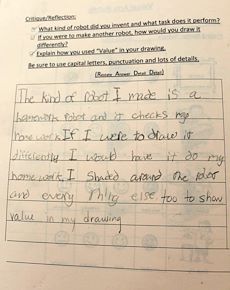 Critique/Reflection:
What kind of robot did you invent and what task does it perform?
If you were to make another robot, how would you draw it
differently?
Explain how you used "Value" in your drawing.
Be sure to use capital letters, punctuation and lots of details.
(Restate Answer Detail Detail)
The kind of robot I made is a
homework robot and it checks my
home work. If I were to draw it
differently I would have it do my
home work. I shaded around the robot
and every thing else too to show
value in my drawing